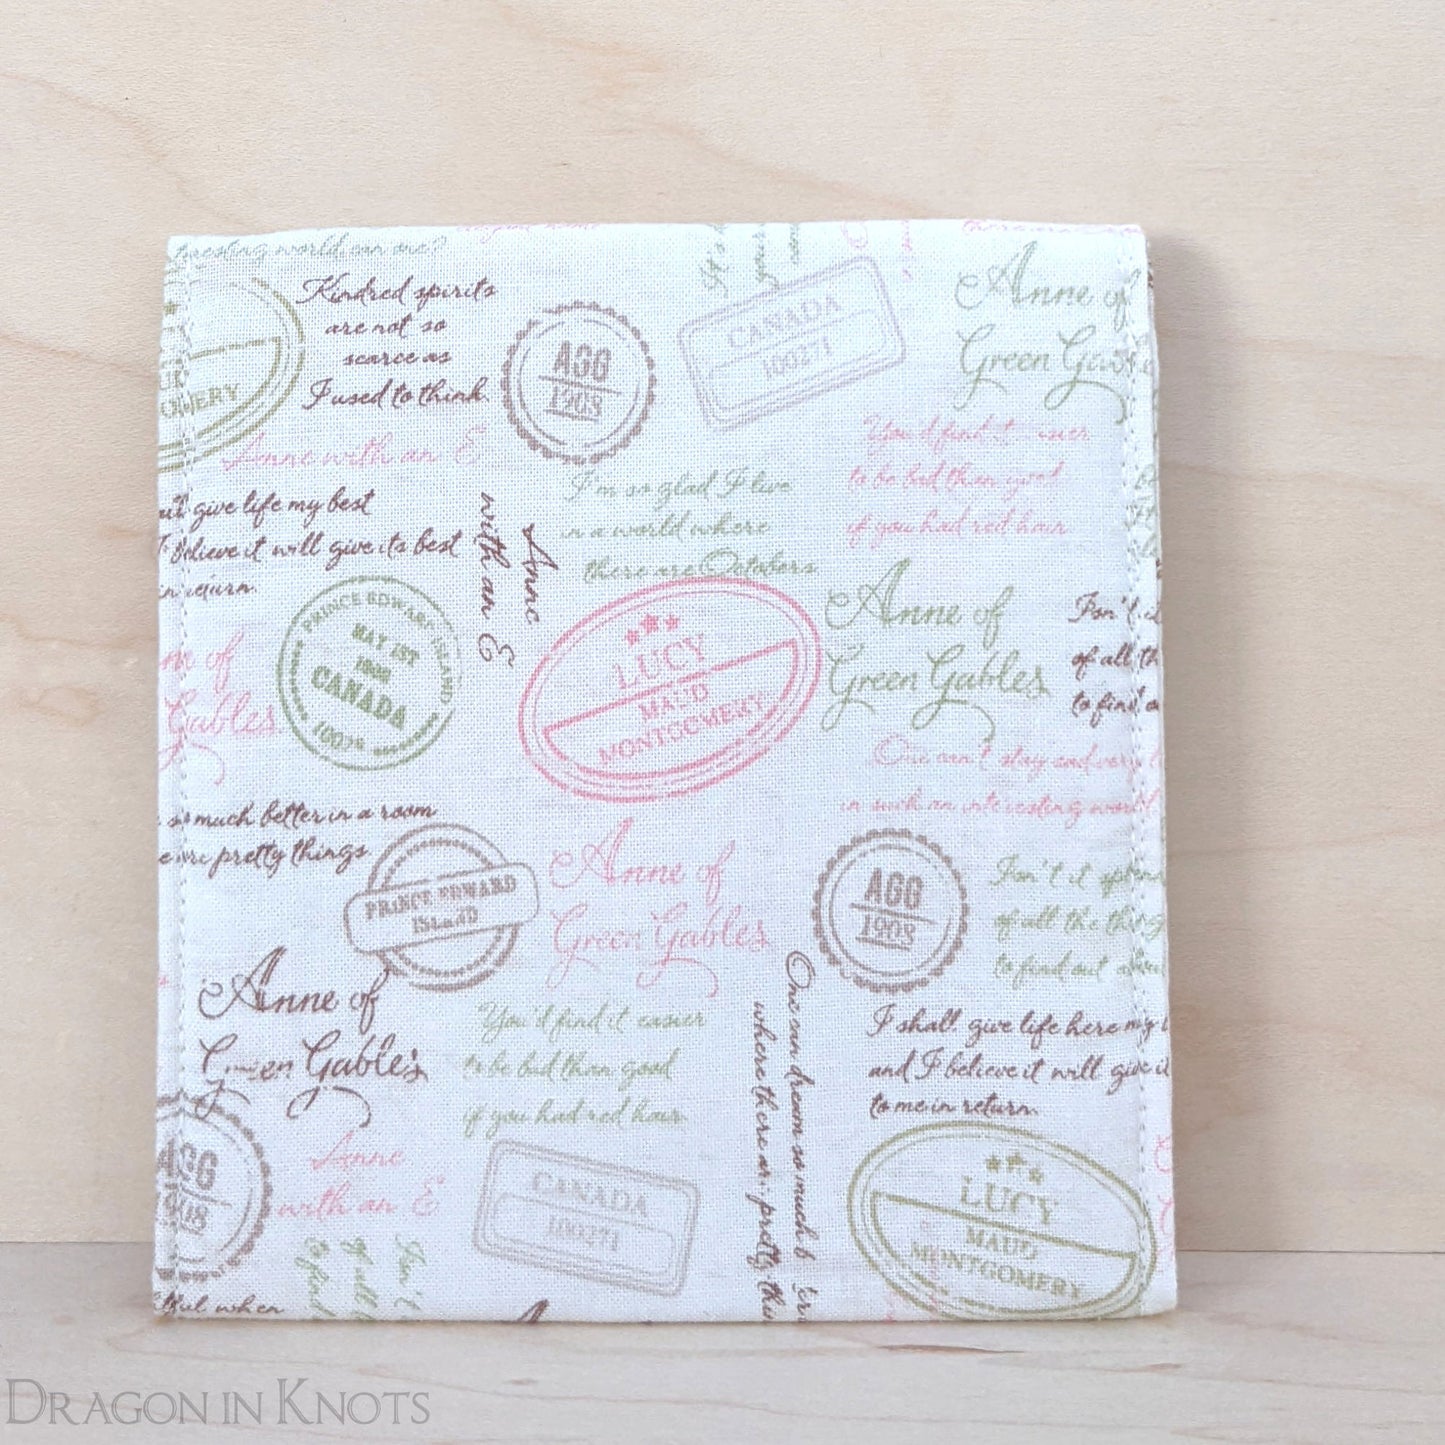 teresting world can one?
Kindred spirits
are not so
scarce as
I used to think.
MERY
AGG
1908
CANADA
100271
Anne of
Green Gables
Anne with an E
You'd find it easier
to be bad than good
if you had red hair
give life my best
I believe it will give its best
in return.
Anne
with an E
I'm so glad I live
in a world where
there are Octobers.
PRINCE EDWARD ISLAND
MAY 1ST
CANADA
LUCY
MAUD
MONTGOMERY
Anne of
Green Gables
Isn't
of all th
to find o
of
Gables
One can't stay sad very
in such an interesting world
so much better in a room
are pretty things
PRINCE EDWARD
ISLAND
Anne of
Green Gables
AGG
1908
Isn't it splen
of all the thing
to find out about
Anne of
Green Gables
You'd find it easier
to be bad than good
if you had red hair
One can dream so much b
where there are pretty thin
I shall give life here my
and I believe it will give it
to me in return.
AGG
Anne
with an E
CANADA
100271
Isn't
of all
to find
LUCY
MAUD
MONTGOMERY
when
DRAGON IN KNOTS